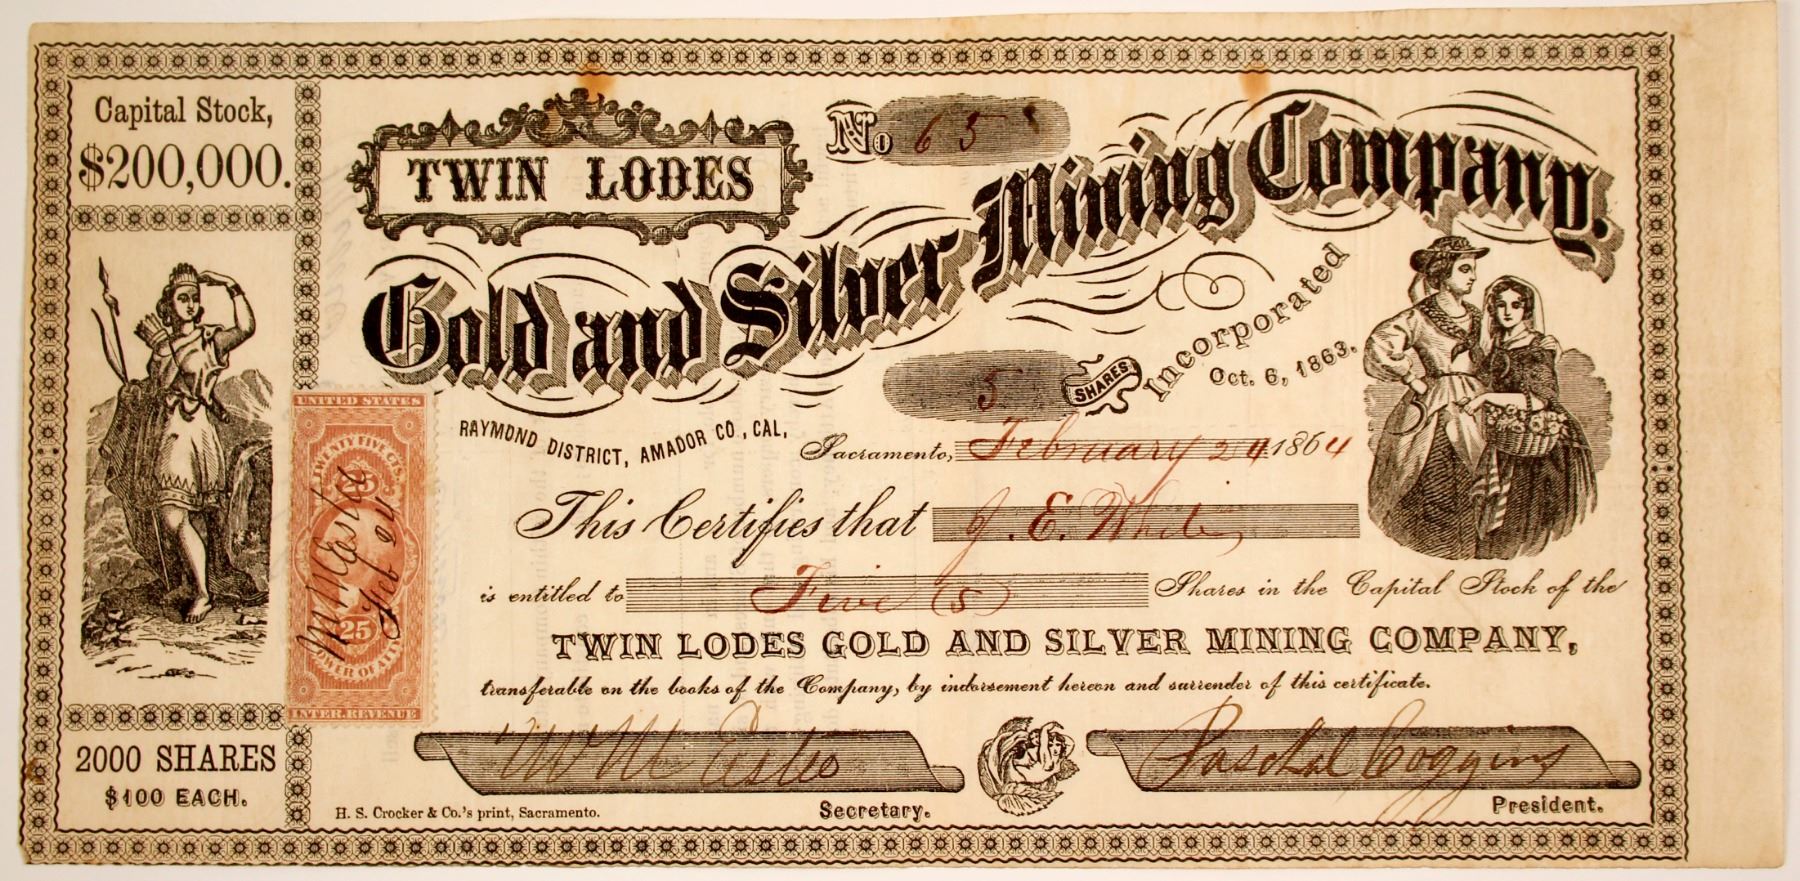 Capital Stock,
$200,000.
TWIN LODES
No 65
Gold and Silver Mining Company.
Incorporated
Oct. 6, 1863.
5 SHARES
RAYMOND DISTRICT, AMADOR CO., CAL,
Sacramento, February 24 1864
This Certifies that J. E. White
is entitled to Five (5) Shares in the Capital Stock of the
TWIN LODES GOLD AND SILVER MINING COMPANY,
transferable on the books of the Company, by indorsement hereon and surrender of this certificate.
UNITED STATES
TWENTY FIVE CTS.
25
Feb 24
25
POWER OF ATTY
INTER. REVENUE
2000 SHARES
$100 EACH.
Secretary.
Paschal Coggins
President.
H. S. Crocker & Co.'s print, Sacramento.